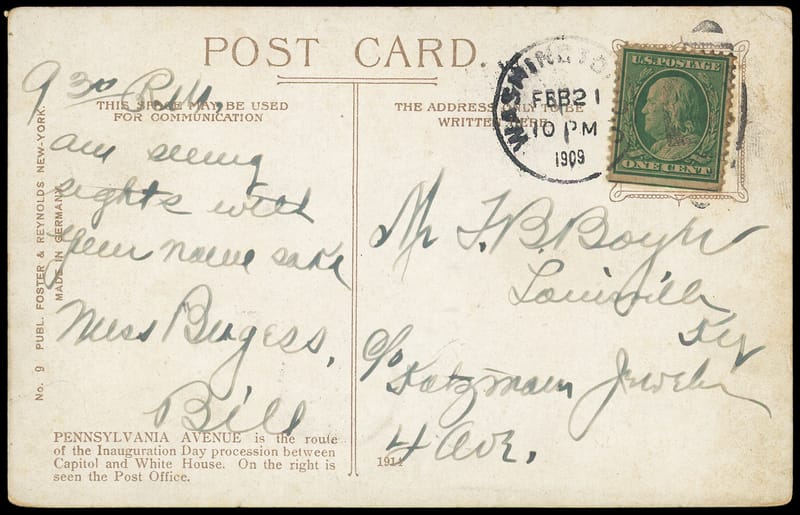 POST CARD.
THIS SPACE MAY BE USED
FOR COMMUNICATION
THE ADDRESS ONLY TO BE
WRITTEN HERE
WASHINGTON
FEB 21
10 PM
1909
U.S. POSTAGE
ONE CENT
9 30 P.M.
am seeing
sights with
your name sake
Miss Burgess,
Bill
Mr
Louisville
Ky
c/o Katzman Jeweler
4 Ave.
No. 9 PUBL. FOSTER & REYNOLDS NEW-YORK.
MADE IN GERMANY
PENNSYLVANIA AVENUE is the route
of the Inauguration Day procession between
Capitol and White House. On the right is
seen the Post Office.
1914